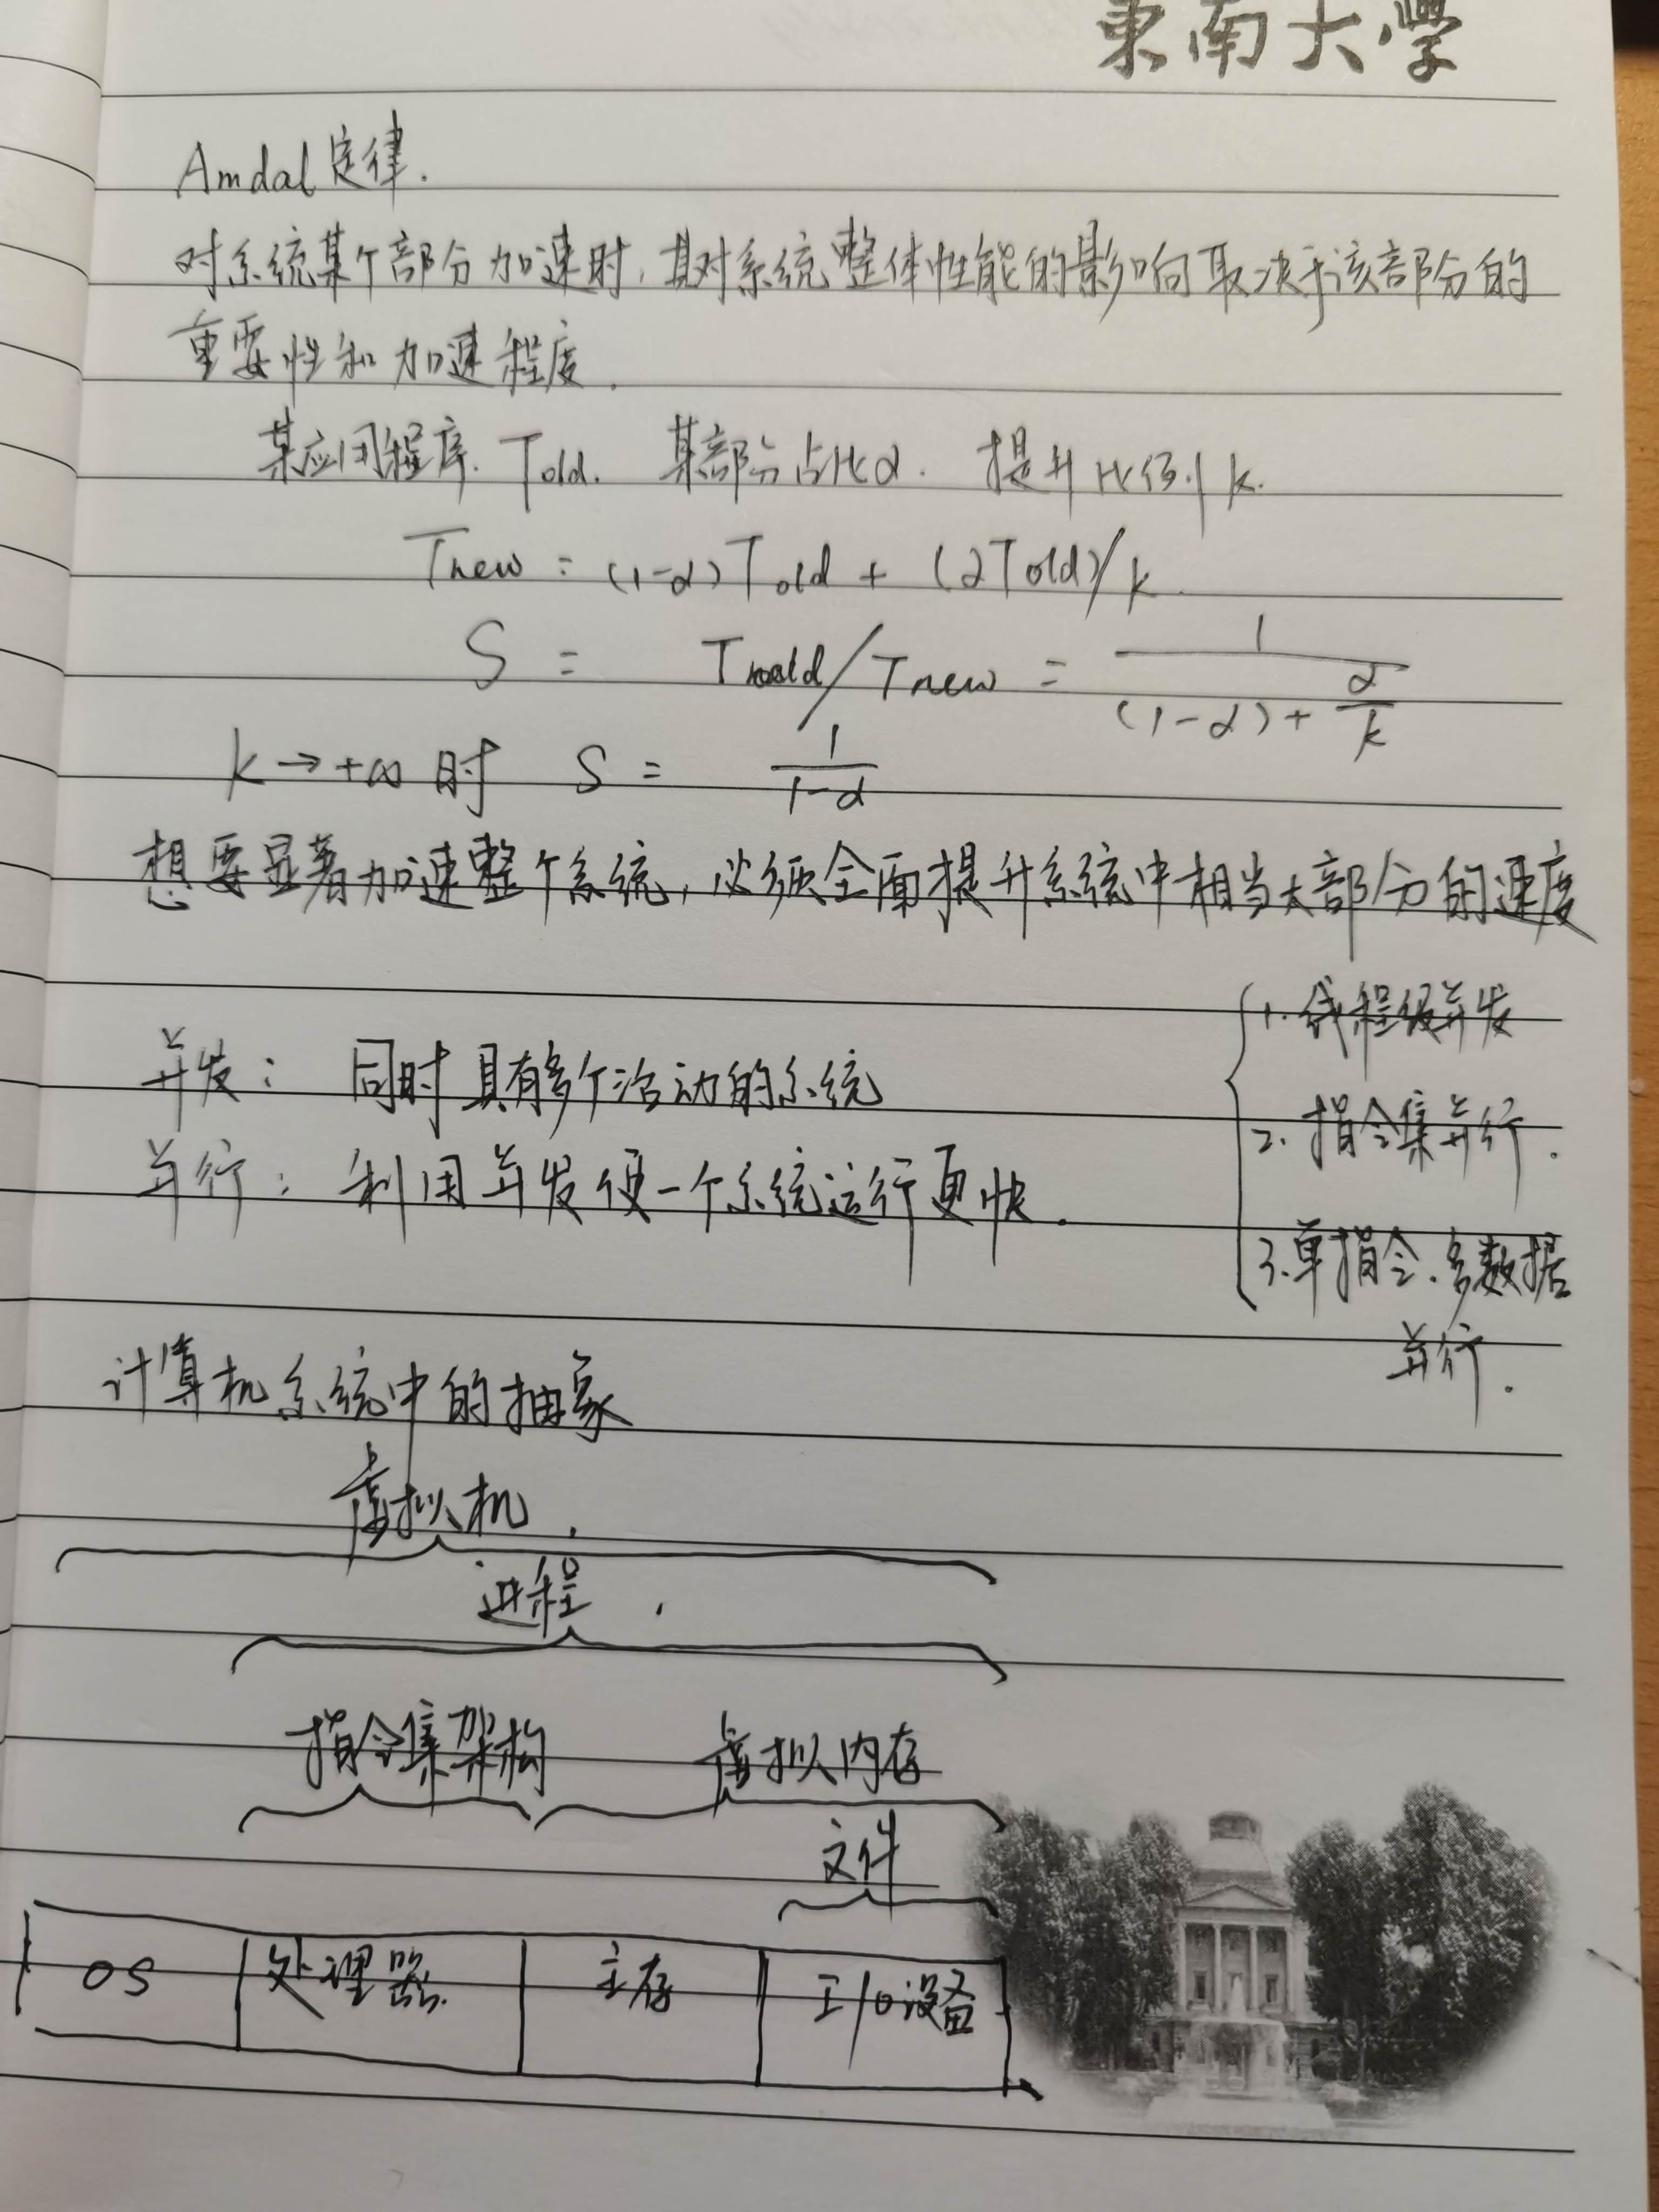 東南大學
Amdal定律.
对系统某个部分加速时,其对系统整体性能的影响取决于该部分的
重要性和加速程度.
某应用程序. Told. 某部分占比α. 提升比例k.
Tnew = (1-α)Told + (αTold)/k.
S = Told/Tnew = 1/((1-α)+α/k)
k→+∞时 S = 1/(1-α)
想要显著加速整个系统,必须全面提升系统中相当大部分的速度
并发: 同时具有多个活动的系统
并行: 利用并发使一个系统运行更快.
1.线程级并发
2.指令集并行.
3.单指令.多数据
并行.
计算机系统中的抽象
虚拟机.
进程.
指令集架构 虚拟内存
文件
OS 处理器. 主存 I/O设备